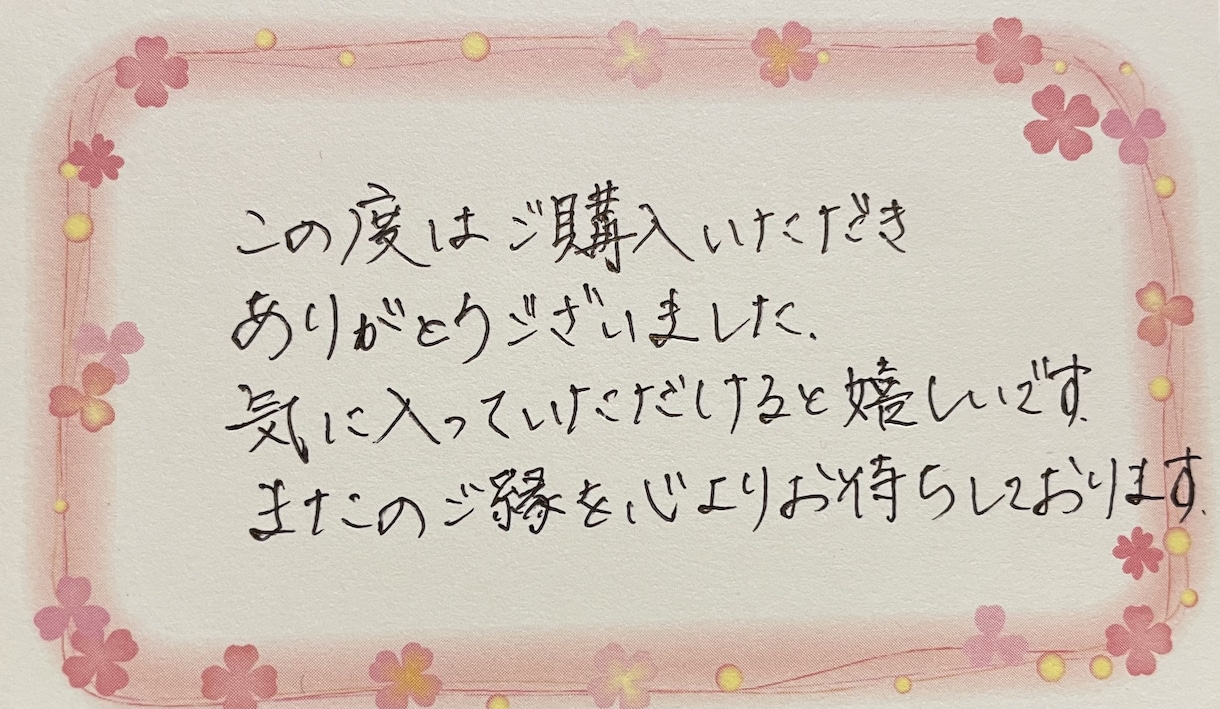 この度はご購入いただき
ありがとうございました.
気に入っていただけると嬉しいです.
またのご縁を心よりお待ちしております.